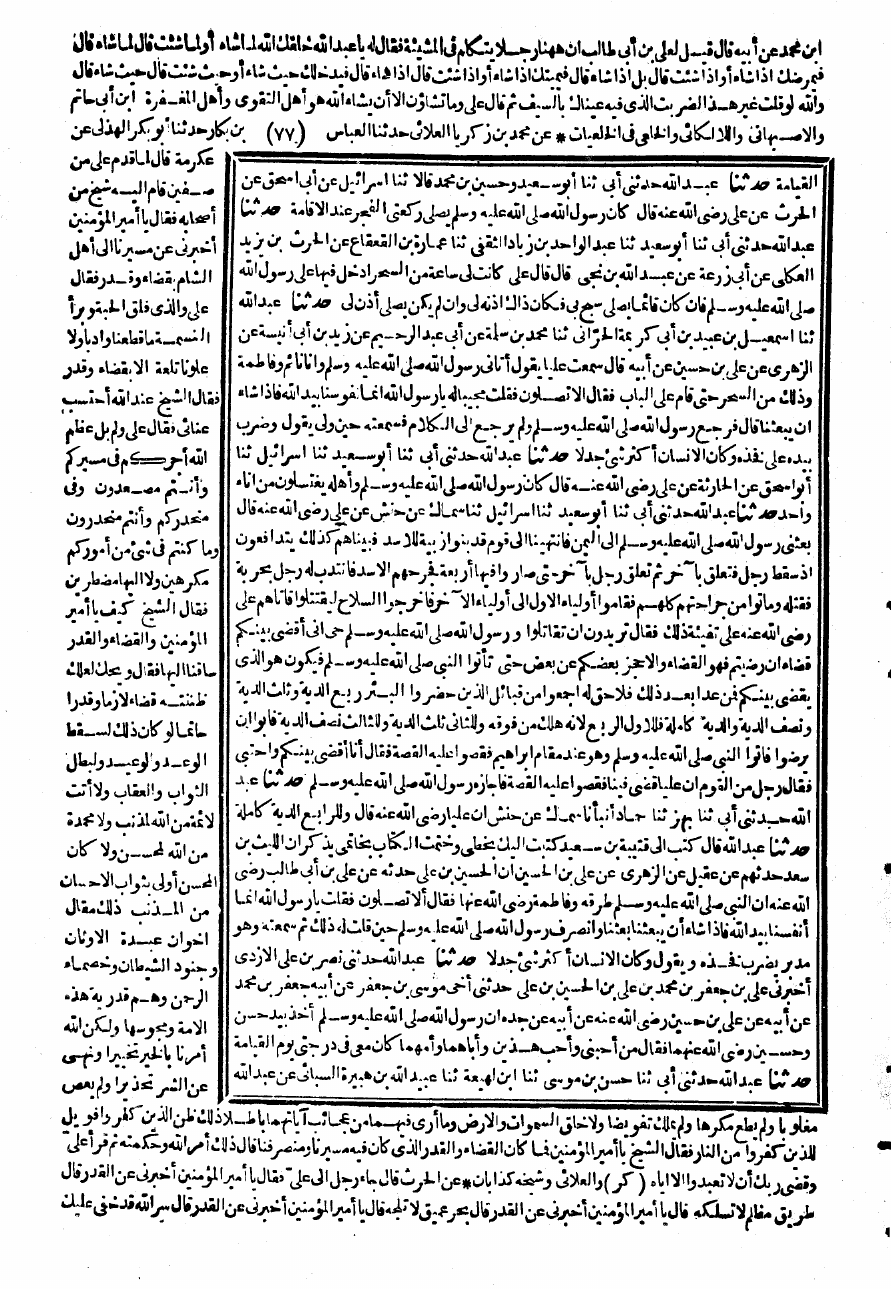 ابن محمد عن أبيه قال قيل لعلى بن أبى طالب ان ههنا رجلا يتكلم فى المشيئة فقال له يا عبد الله خلقك الله لما شاء أولما شئت قال لما شاء قال
فيمرضك اذا شاء أو اذا شئت قال بل اذا شاء قال فيميتك اذا شاء أو اذا شئت قال اذا شاء قال فيدخلك حيث شاء أو حيث شئت قال حيث شاء قال
والله لو قلت غير هذا لضربت الذى فيه عيناك بالسيف ثم تلا على وما تشاؤن الا أن يشاء الله هو أهل التقوى وأهل المغفرة ابن أبى حاتم
والاصبهانى واللالكائى والخلعى فى الخلعيات * عن محمد بن زكريا العلائى حدثنا العباس (٧٧) بن بكار حدثنا أبو بكر الهذلى عن
عكرمة قال لما قدم على من
صفين قام اليه شيخ من
أصحابه فقال يا أمير المؤمنين
أخبرنى عن مسيرنا الى أهل
الشام بقضاء وقدر فقال
على والذى فلق الحبة وبرأ
النسمة ما قطعنا واديا ولا
علونا تلعة الا بقضاء وقدر
فقال الشيخ عند الله أحتسب
عنائى فقال على ولم بل عظم
الله أجركم فى مسيركم
وأنتم مصعدون وفى
منحدركم وأنتم منحدرون
وما كنتم فى شئ من أموركم
مكرهين ولا اليها مضطرين
فقال الشيخ كيف يا أمير
المؤمنين والقضاء والقدر
ساقنا اليها فقال ويحك لعلك
ظننته قضاء لازما وقدرا
حاتما لو كان ذلك لسقط
الوعد والوعيد ولبطل
الثواب والعقاب ولا أتت
لائمة من الله لمذنب ولا محمدة
من الله لمحسن ولا كان
المحسن أولى بثواب الاحسان
من المذنب ذلك مقال
اخوان عبدة الاوثان
وجنود الشيطان وخصماء
الرحمن وهم قدرية هذه
الامة ومجوسها ولكن الله
أمرنا بالخير تخييرا ونهى
عن الشر تحذيرا ولم يعص
القيامة حدثنا عبد الله حدثنى أبى ثنا أبو سعيد وحسين بن محمد قالا ثنا اسرائيل عن أبى اسحق عن
الحرث عن على رضى الله عنه قال كان رسول الله صلى الله عليه وسلم يصلى ركعتى الفجر عند الاقامة حدثنا
عبد الله حدثنى أبى ثنا أبو سعيد ثنا عبد الواحد بن زياد الثقفى ثنا عمارة بن القعقاع عن الحرث بن يزيد
العكلى عن أبى زرعة عن عبد الله بن نجى قال قال على كانت لى ساعة من السحر ادخل فيها على رسول الله
صلى الله عليه وسلم فان كان قائما يصلى سبح بى فكان ذاك اذنه لى وان لم يكن يصلى أذن لى حدثنا عبد الله
ثنا اسمعيل بن عبيد بن أبى كريمة الحرانى ثنا محمد بن سلمة عن أبى عبد الرحيم عن زيد بن أبى أنيسة عن
الزهرى عن على بن حسين عن أبيه قال سمعت عليا يقول أتانى رسول الله صلى الله عليه وسلم وانا نائم وفاطمة
وذلك من السحر حتى قام على الباب فقال الا تصلون فقلت مجيبا له يا رسول الله انما نفوسنا بيد الله فاذا شاء
ان يبعثنا قال فرجع رسول الله صلى الله عليه وسلم ولم يرجع الى الكلام فسمعته حين ولى يقول وضرب
بيده على فخذه وكان الانسان أكثر شئ جدلا حدثنا عبد الله حدثنى أبى ثنا أبو سعيد ثنا اسرائيل ثنا
أبو اسحق عن الحارثة عن على رضى الله عنه قال كان رسول الله صلى الله عليه وسلم وأهله يغتسلون من اناء
واحد حدثنا عبد الله حدثنى أبى ثنا أبو سعيد ثنا اسرائيل ثنا سماك عن حنش عن على رضى الله عنه قال
بعثنى رسول الله صلى الله عليه وسلم الى اليمن فانتهينا الى قوم قد بنوا زبية للاسد فبيناهم كذلك يتدافعون
اذ سقط رجل فتعلق بآخر ثم تعلق رجل بآخر حتى صاروا فيها أربعة فجرحهم الاسد فانتدب له رجل بحربة
فقتله وماتوا من جراحتهم كلهم فقاموا أولياء الاول الى أولياء الآخر فاخرجوا السلاح ليقتتلوا فاتاهم على
رضى الله عنه على تفيئة ذلك فقال تريدون ان تقاتلوا ورسول الله صلى الله عليه وسلم حى انى أقضى بينكم
قضاء ان رضيتم فهو القضاء والا حجز بعضكم عن بعض حتى تأتوا النبى صلى الله عليه وسلم فيكون هو الذى
يقضى بينكم فمن عدا بعد ذلك فلا حق له اجمعوا من قبائل الذين حضروا البئر ربع الدية وثلث الدية
ونصف الدية والدية كاملة فللاول الربع لانه هلك من فوقه وللثانى ثلث الدية وللثالث نصف الدية فابوا ان
يرضوا فاتوا النبى صلى الله عليه وسلم وهو عند مقام ابراهيم فقصوا عليه القصة فقال أنا أقضى بينكم واحتبى
فقال رجل من القوم ان عليا قضى فينا فقصوا عليه القصة فاجازه رسول الله صلى الله عليه وسلم حدثنا عبد
الله حدثنى أبى ثنا بهز ثنا حماد أنبأنا سماك عن حنش ان عليا رضى الله عنه قال وللرابع الدية كاملة
حدثنا عبد الله قال كتب الى قتيبة بن سعيد كتبت اليك بخطى وختمت الكتاب بخاتمى يذكر ان الليث بن
سعد حدثهم عن عقيل عن الزهرى عن على بن الحسين ان الحسين بن على حدثه عن على بن أبى طالب رضى
الله عنه ان النبى صلى الله عليه وسلم طرقه وفاطمة رضى الله عنها فقال ألا تصلون فقلت يا رسول الله انما
أنفسنا بيد الله فاذا شاء أن يبعثنا بعثنا وانصرف رسول الله صلى الله عليه وسلم حين قلت له ذلك ثم سمعته وهو
مدبر يضرب فخذه ويقول وكان الانسان أكثر شئ جدلا حدثنا عبد الله حدثنى نصر بن على الازدى
أخبرنى على بن جعفر بن محمد بن على بن الحسين بن على حدثنى أخى موسى بن جعفر عن أبيه جعفر بن محمد
عن أبيه عن على بن حسين رضى الله عنه عن أبيه عن جده ان رسول الله صلى الله عليه وسلم أخذ بيد حسن
وحسين رضى الله عنهما فقال من أحبنى وأحب هذين وأباهما وأمهما كان معى فى درجتى يوم القيامة
حدثنا عبد الله حدثنى أبى ثنا حسن بن موسى ثنا ابن لهيعة ثنا عبد الله بن هبيرة السبائى عن عبد الله
مغلوبا ولم يطع مكرها ولم يملك تفويضا ولا خلق السموات والارض وما أرى فيهما من عجائب آياتهما باطلا ذلك ظن الذين كفروا فويل
للذين كفروا من النار فقال الشيخ يا أمير المؤمنين فما كان القضاء والقدر الذى كان فيه مسيرنا ومنصرفنا قال ذلك أمر الله وحكمته ثم قرأ على
وقضى ربك أن لا تعبدوا الا اياه (كر) والعلائى وشيخه كذابان * عن الحرث قال جاء رجل الى على فقال يا أمير المؤمنين أخبرنى عن القدر قال
طريق مظلم لا تسلكه قال يا أمير المؤمنين أخبرنى عن القدر قال بحر عميق لا تلجه قال يا أمير المؤمنين أخبرنى عن القدر قال سر الله قد خفى عليك